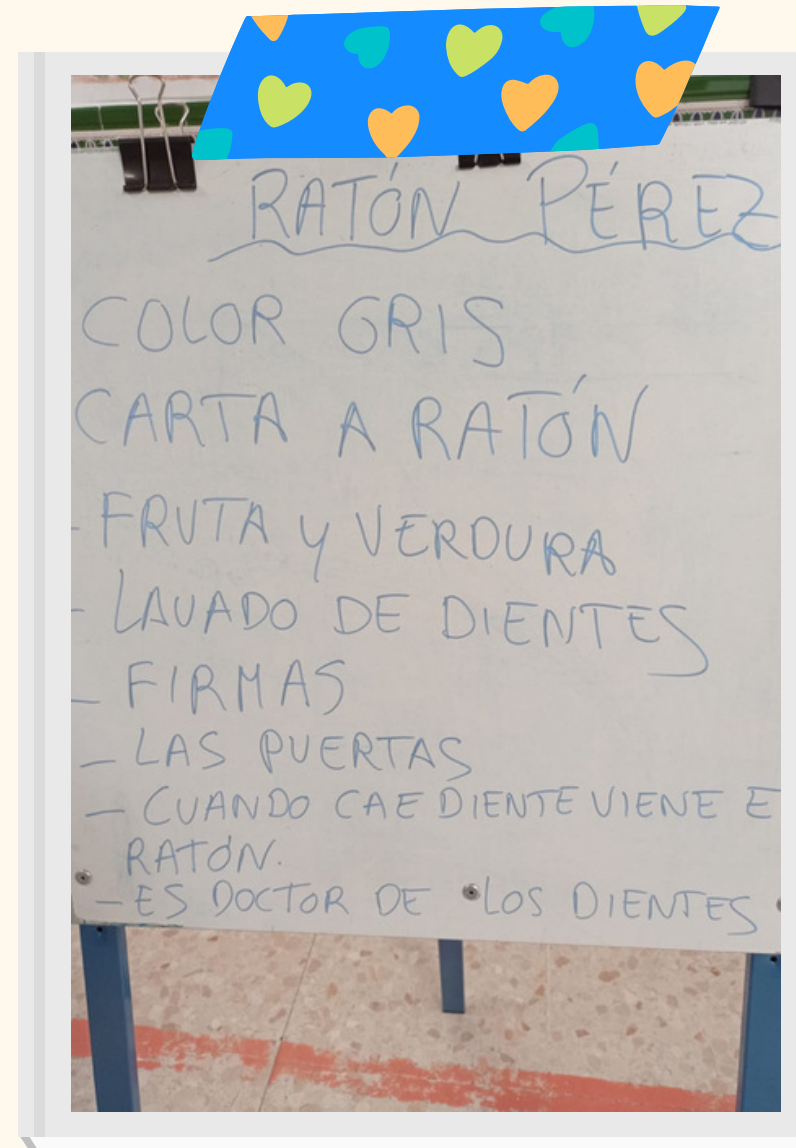 RATÓN PÉREZ
COLOR GRIS
CARTA A RATÓN
- FRUTA y VERDURA
- LAVADO DE DIENTES
- FIRMAS
- LAS PUERTAS
- CUANDO CAE DIENTE VIENE E
RATÓN.
- ES DOCTOR DE LOS DIENTES